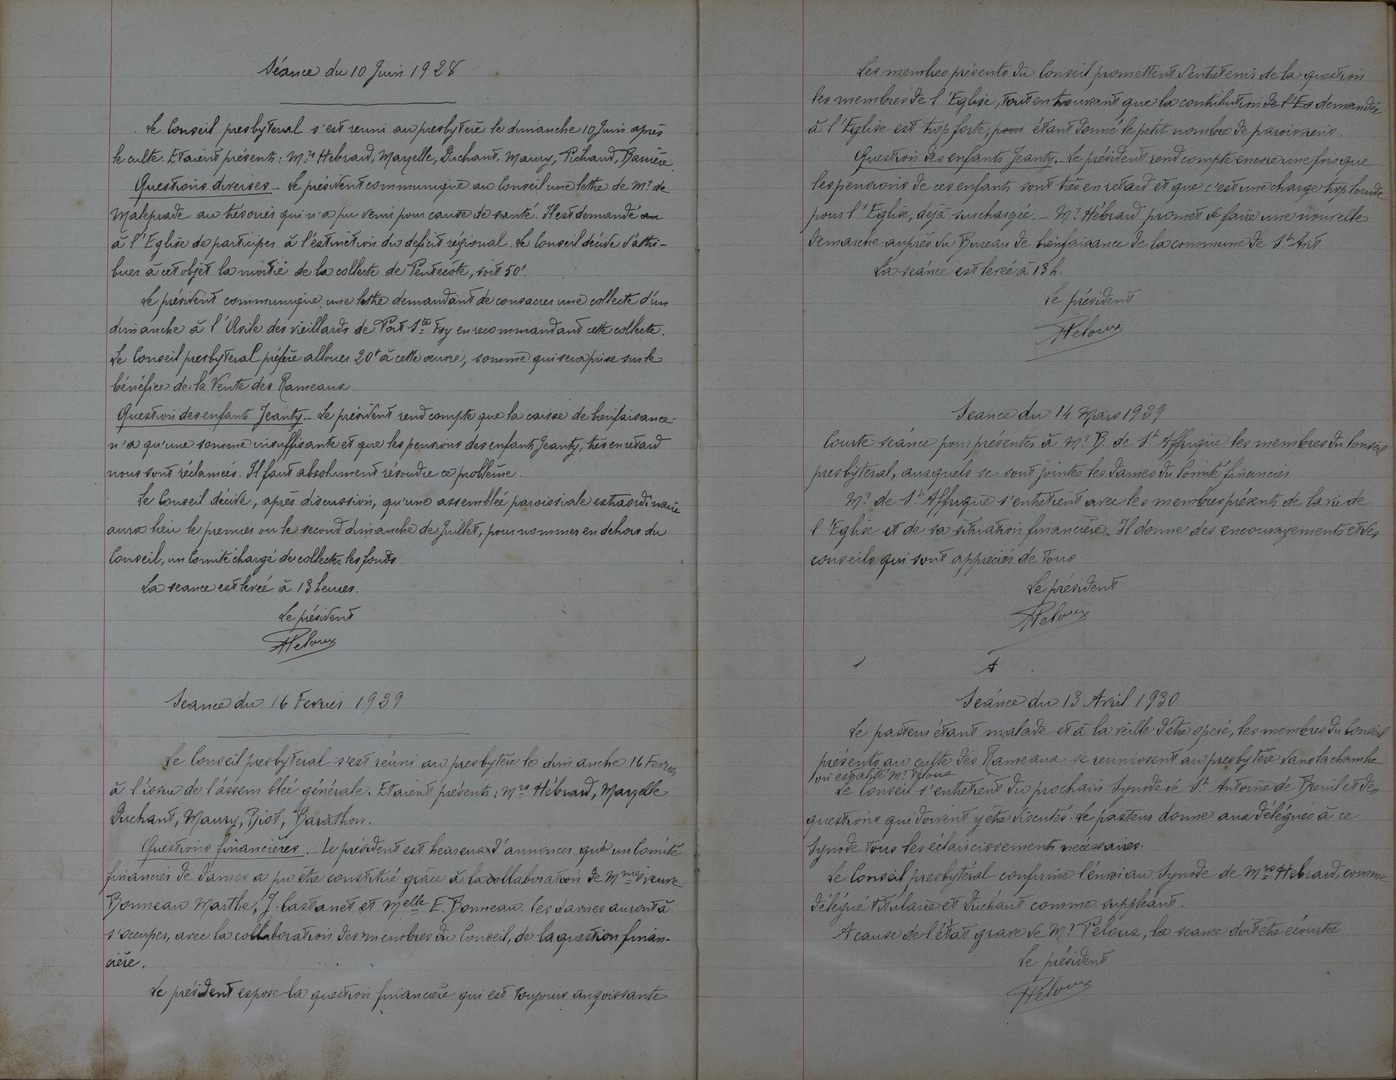 Séance du 10 Juin 1928
Le Conseil presbyteral s'est reuni au presbytère le dimanche 10 Juin après
le culte. Etaient présents : Mrs Hebrard, Mazelle, Duchant, Maury, Pichaud, Barrière.
Questions diverses _ Le président communique au Conseil une lettre de Mr de
Maleprade au trésorier qui n'a pu venir pour cause de santé. Il est demandé au
à l'Eglise de participer à l'extinction du deficit régional. Le Conseil décide d'attri-
buer à cet objet la moitié de la collecte de Pentecôte, soit 50f.
Le président communique une lettre demandant de consacrer une collecte d'un
dimanche à l'Asile des vieillards de Port Ste Foy en recommandant cette collecte.
Le Conseil presbyteral préfère allouer 20f à cette œuvre, somme qui sera prise sur le
bénéfice de la Vente des Rameaux
Question des enfants Jeanty _ Le président rend compte que la caisse de bienfaisance
n'a qu'une somme insuffisante et que les pensions des enfants Jeanty, très en retard
nous sont réclamées. Il faut absolument résoudre ce problème.
Le Conseil décide, après discussion, qu'une assemblée paroissiale extraordinaire
aura lieu le premier ou le second dimanche de Juillet, pour nommer en dehors du
Conseil, un Comité chargé de collecter les fonds
La seance est levée à 13 heures.
Le président
APeloux
Seance du 16 Fevrier 1929
Le Conseil presbyteral s'est réuni au presbytère le dimanche 16 Fevrier
à l'issue de l'assemblée générale. Etaient présents : Mrs Hébrard, Mazelle
Duchant, Maury, Biot, Barathon.
Questions financières _ Le president est heureux d'annoncer que un Comité
financier de dames a pu être constitué grâce à la collaboration de Mmes veuve
Bonneau Marthe, J. Castanet et Melle E. Bonneau. Les dames auront à
s'occuper, avec la collaboration des membres du Conseil, de la question finan-
cière.
Le président expose la question financière qui est toujours angoissante
Les membres présents du Conseil promettent d'entretenir de la question
les membres de l'Eglise, tout en trouvant que la contribution de l'Es demandée
à l'Eglise est trop forte, pour étant donné le petit nombre de paroissiens.
Question des enfants Jeanty _ Le président rend compte encore une fois que
les pensions de ces enfants sont très en retard et que c'est une charge trop lourde
pour l'Eglise, déjà surchargée. _ Mr Hébrard promet de faire une nouvelle
démarche auprès du Bureau de bienfaisance de la commune de St Avit
La séance est levée à 13h.
Le président
APeloux
Seance du 14 Mars 1929
Courte séance pour présenter à Mr B. de St Affrique les membres du Conseil
presbyteral, auxquels se sont jointes les dames du Comité financier
Mr de St Affrique s'entretient avec les membres présents de la vie de
l'Eglise et de sa situation financière. Il donne des encouragements et des
conseils qui sont appréciés de tous
Le président
APeloux
A
Séance du 13 Avril 1930
Le pasteur étant malade et à la veille d'être opéré, les membres du Conseil
présents au culte des Rameaux se reunissent au presbytère dans la chambre
où est alité Mr Peloux
Le Conseil s'entretient du prochain Synode de St Antoine de Breuil et des
questions qui doivent y être discutés. Le pasteur donne aux délégués à ce
Synode tous les éclaircissements nécessaires.
Le Conseil presbytéral confirme l'envoi au Synode de Mrs Hébrard, comme
délégué titulaire et Duchant comme suppléant.
A cause de l'état grave de Mr Peloux, la seance doit être écourtée
Le président
APeloux